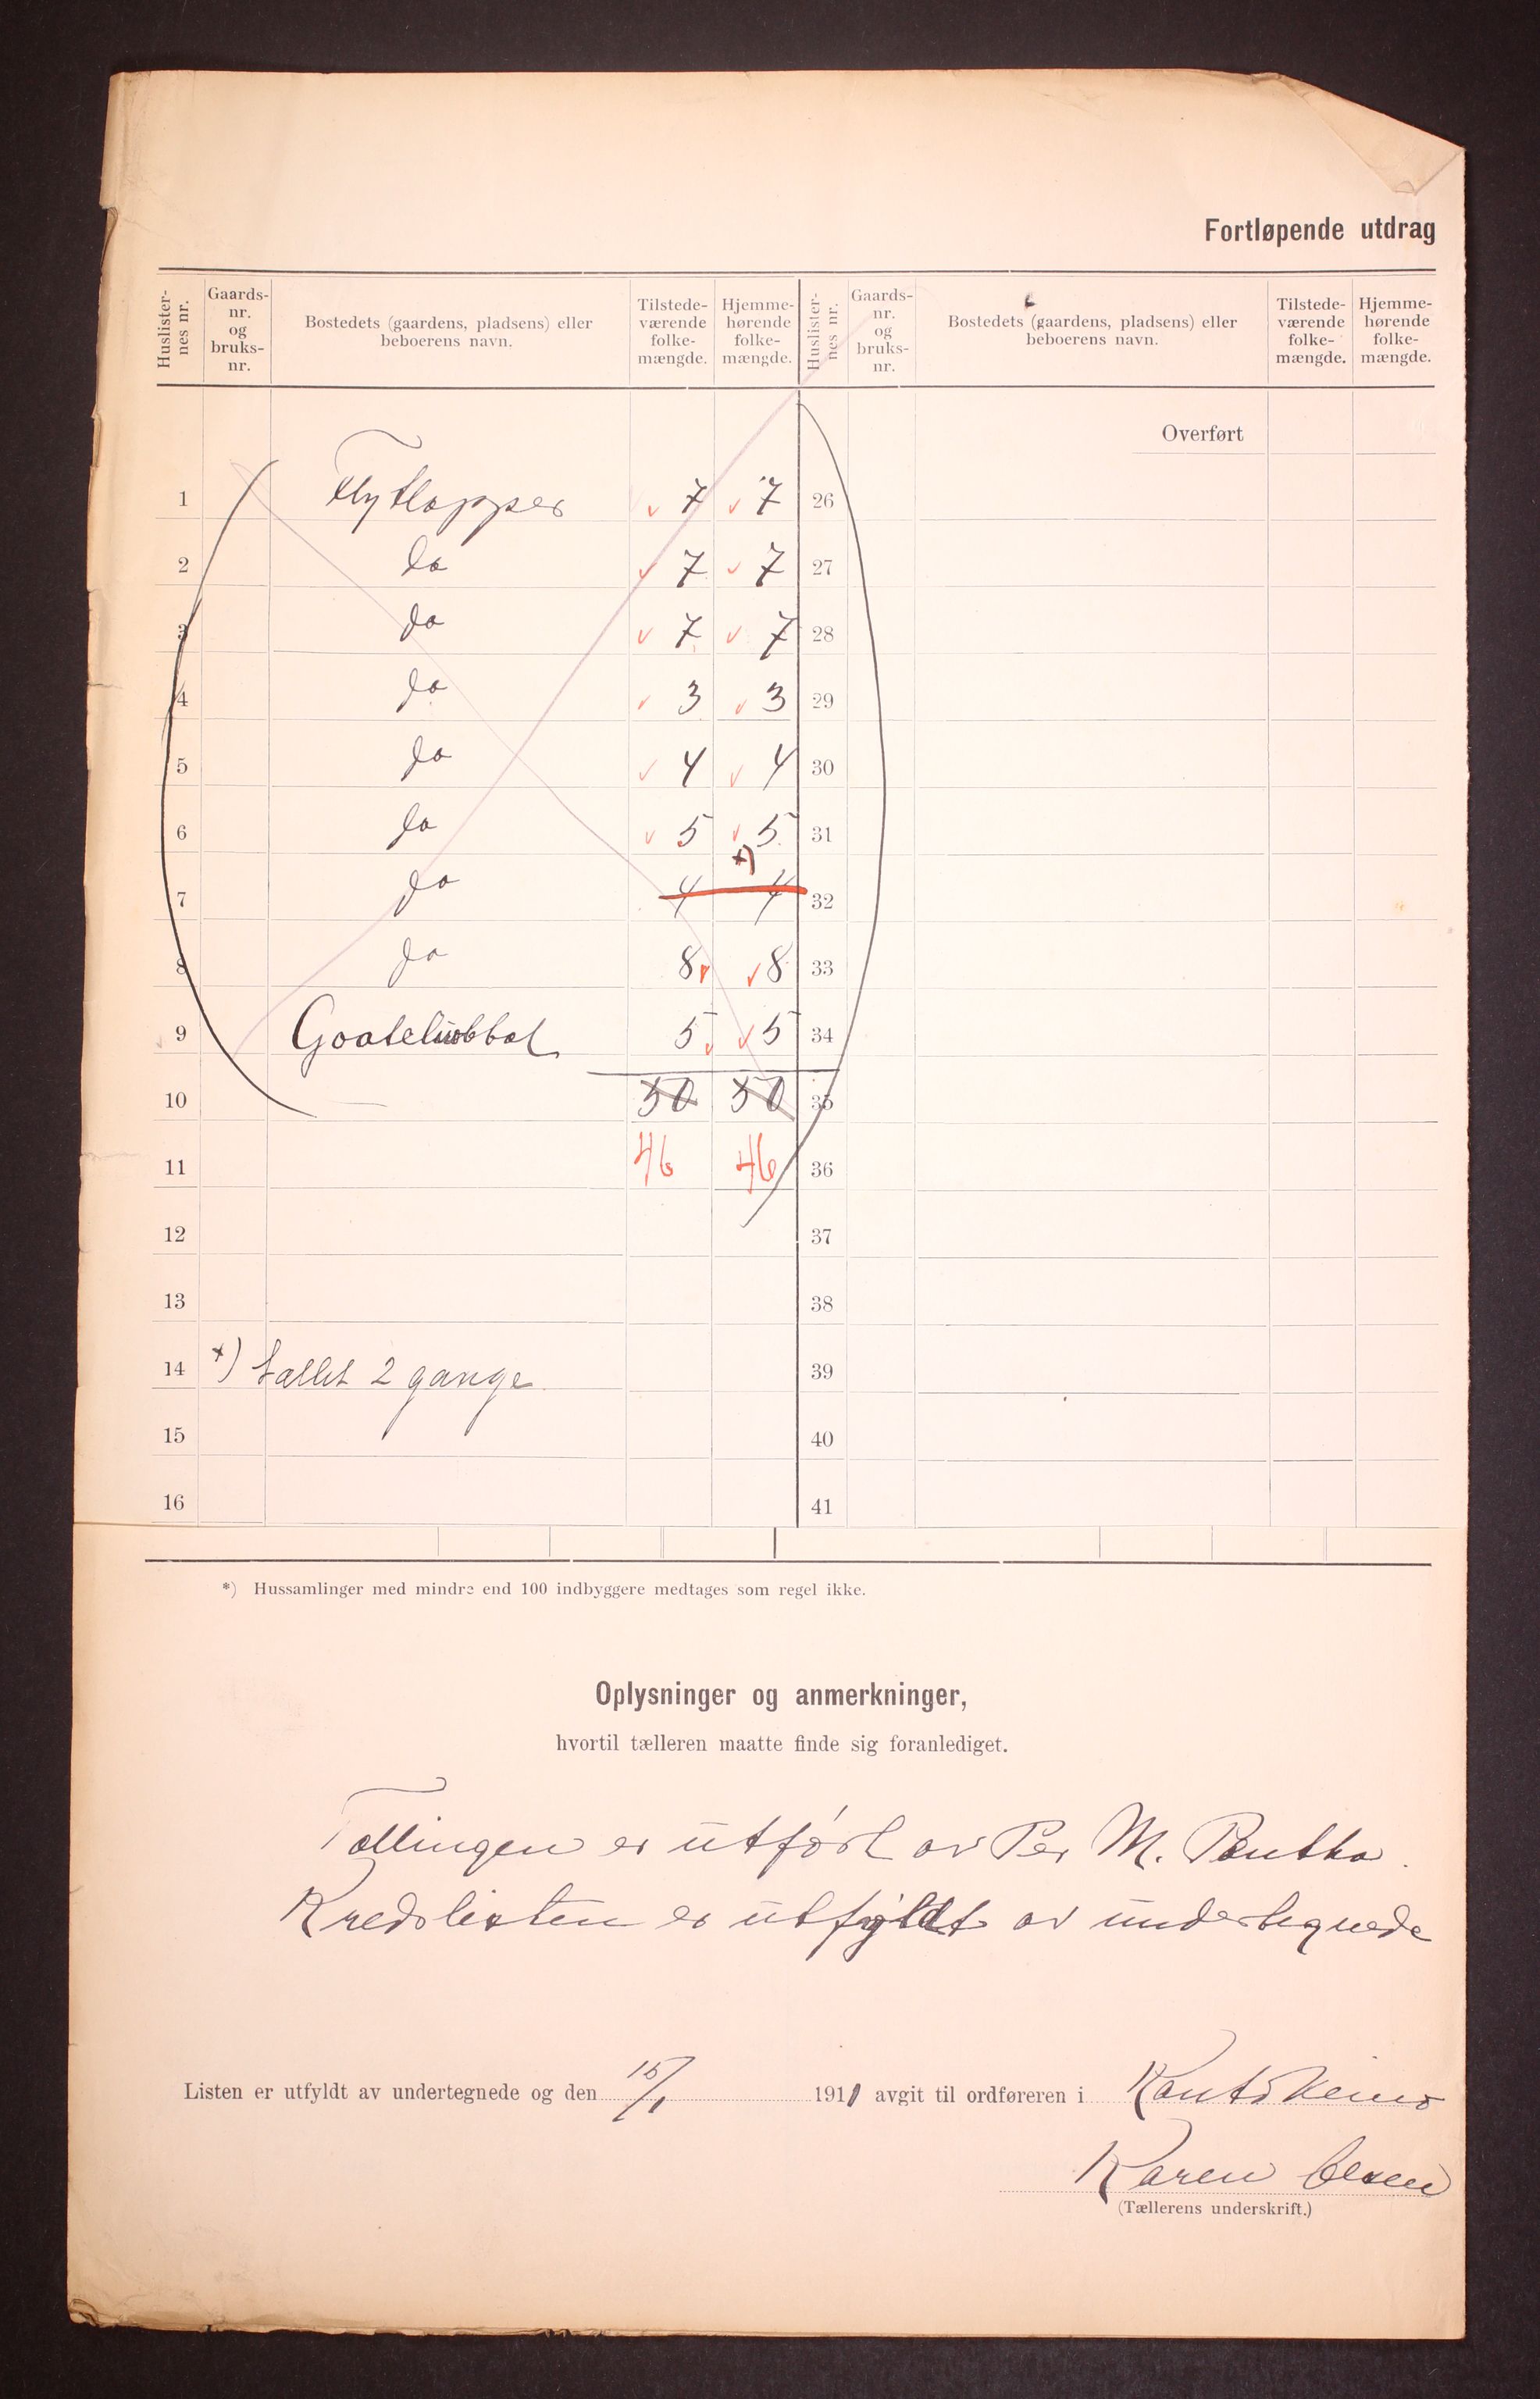 Fortløpende utdrag
Huslister-nes nr. Gaards-nr. og bruks-nr. Bostedets (gaardens, pladsens) eller beboerens navn. Tilstede-værende folke-mængde. Hjemme-hørende folke-mængde. Huslister-nes nr. Gaards-nr. og bruks-nr. Bostedets (gaardens, pladsens) eller beboerens navn. Tilstede-værende folke-mængde. Hjemme-hørende folke-mængde.
Overført
1 Flytlapper 7 7 26
2 do 7 7 27
3 do 7 7 28
4 do 3 3 29
5 do 4 4 30
6 do 5 5 31
7 do 4 4 x) 32
8 do 8 8 33
9 5 5 34
10 50 50 35
11 46 46 36
12 37
13 38
14 x) tællet 2 gange 39
15 40
16 41
*) Hussamlinger med mindre end 100 indbyggere medtages som regel ikke.
Oplysninger og anmerkninger,
hvortil tælleren maatte finde sig foranlediget.
Tællingen er utført av Per M.
Kredslisten er utfyldt av undertegnede
Listen er utfyldt av undertegnede og den 15/1 1911 avgit til ordføreren i Kautokeino
Karen Olsen
(Tællerens underskrift.)